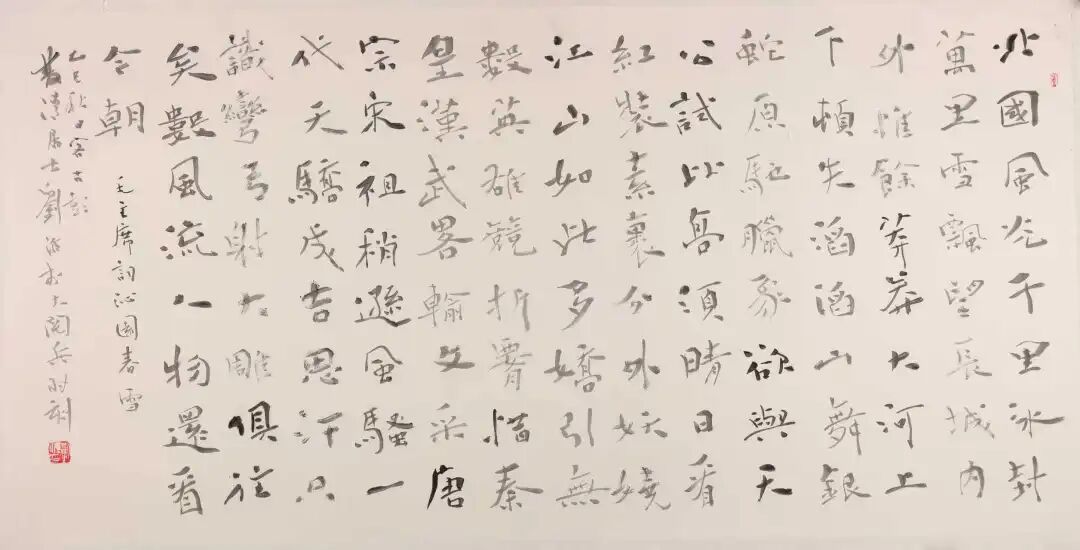 北國風光千里冰封
萬里雪飄望長城內
外惟餘莽莽大河上
下頓失滔滔山舞銀
蛇原馳臘象欲與天
公試比高須晴日看
紅裝素裹分外妖嬈
江山如此多嬌引無
數英雄競折腰惜秦
皇漢武畧輸文采唐
宗宋祖稍遜風騷一
代天驕成吉思汗只
識彎弓射大雕俱往
矣數風流人物還看
今朝
毛主席詞沁園春雪
乙巳秋日客古彭
清居士劉於大閱兵時刻